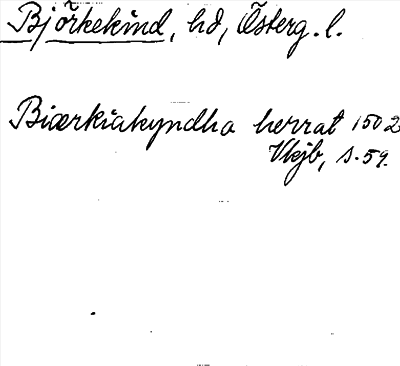 Björkekind, hd, Österg. l.
Biærkiakyndha herrat 1502
Vkjb, s. 59.